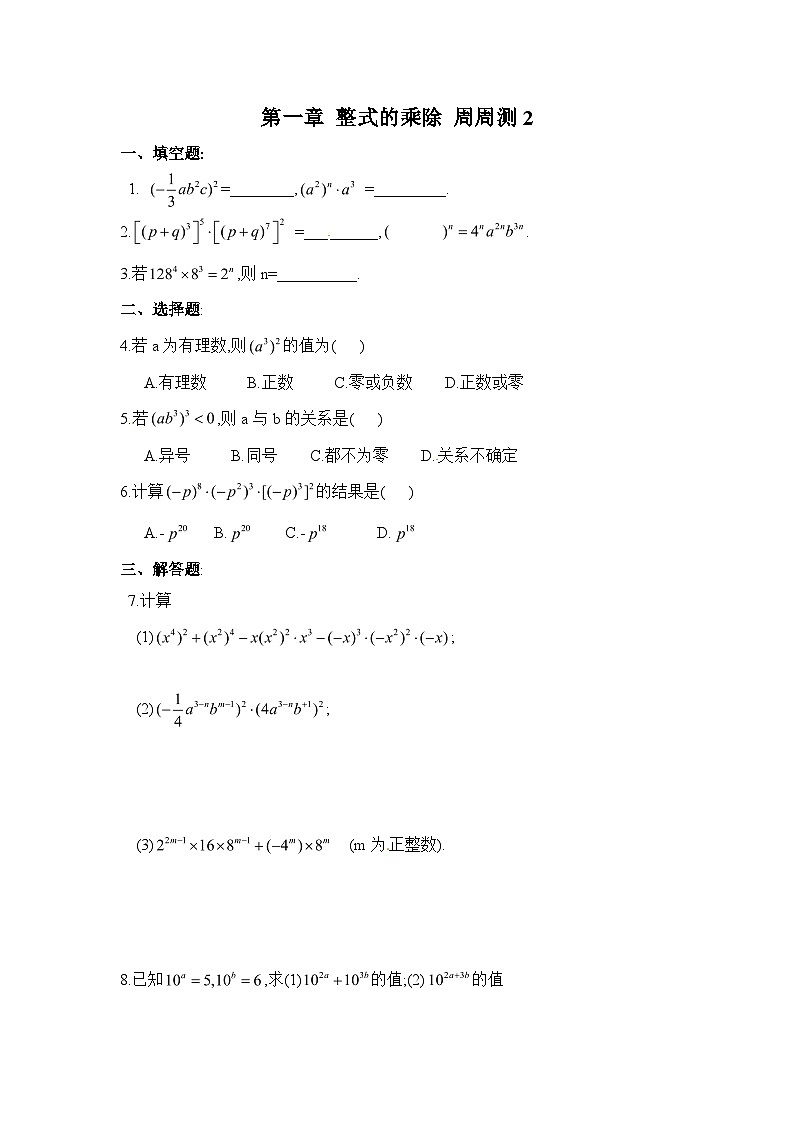 第一章 整式的乘除 周周测2
一、填空题:
1. (-\frac{1}{3}ab^2c)^2=________,(a^2)^n·a^3 =_________.
2.[(p+q)^3]^5·[(p+q)^7]^2 =_________,(    )^n=4^n a^{2n}b^{3n}.
3.若128^4×8^3=2^n,则n=__________.
二、选择题:
4.若a为有理数,则(a^3)^2的值为(    )
A.有理数 B.正数 C.零或负数 D.正数或零
5.若(ab^3)^3<0,则a与b的关系是(    )
A.异号 B.同号 C.都不为零 D.关系不确定
6.计算(-p)^8·(-p^2)^3·[(-p)^3]^2的结果是(    )
A.-p^{20} B.p^{20} C.-p^{18} D.p^{18}
三、解答题:
7.计算
(1)(x^4)^2+(x^2)^4-x(x^2)^2·x^3-(-x)^3·(-x^2)^2·(-x);
(2)(-\frac{1}{4}a^{3-n}b^{m-1})^2·(4a^{3-n}b^{+1})^2;
(3)2^{2m-1}×16×8^{m-1}+(-4^m)×8^m (m为正整数).
8.已知10^a=5,10^b=6,求(1)10^{2a}+10^{3b}的值;(2)10^{2a+3b}的值